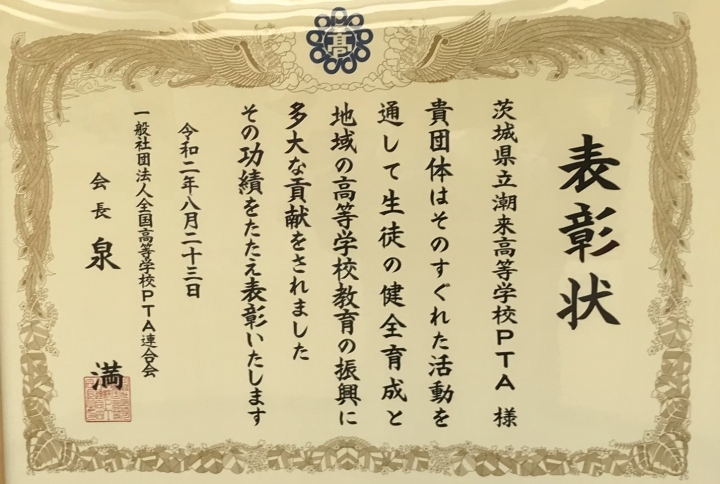 高
表彰状
茨城県立潮来高等学校PTA 様
貴団体はそのすぐれた活動を
通して生徒の健全育成と
地域の高等学校教育の振興に
多大な貢献をされました
その功績をたたえ表彰いたします
令和二年八月二十三日
一般社団法人全国高等学校PTA連合会
会長 泉 満